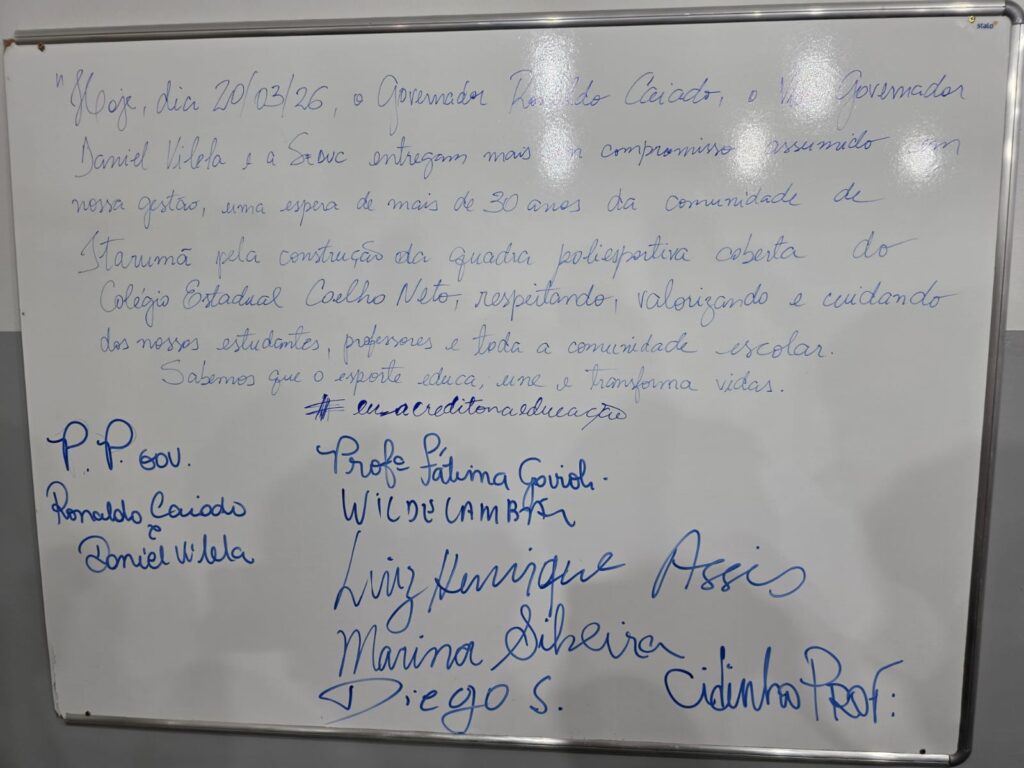 stalo
"Hoje, dia 20/03/26, o Governador Ronaldo Caiado, o Vice Governador
Daniel Vilela e a Seduc entregam mais um compromisso assumido em
nossa gestão, uma espera de mais de 30 anos da comunidade de
Itarumã pela construção da quadra poliesportiva coberta do
Colégio Estadual Coelho Neto, respeitando, valorizando e cuidando
dos nossos estudantes, professores e toda a comunidade escolar.
Sabemos que o esporte educa, une e transforma vidas.
#euacreditonaeducação
P.P. GOV.
Ronaldo Caiado
e
Daniel Vilela
Profª Fátima
WILDE CAMBÃO
Luiz Henrique Assis
Marina Silveira
Diego S.
Cidinho PROF.